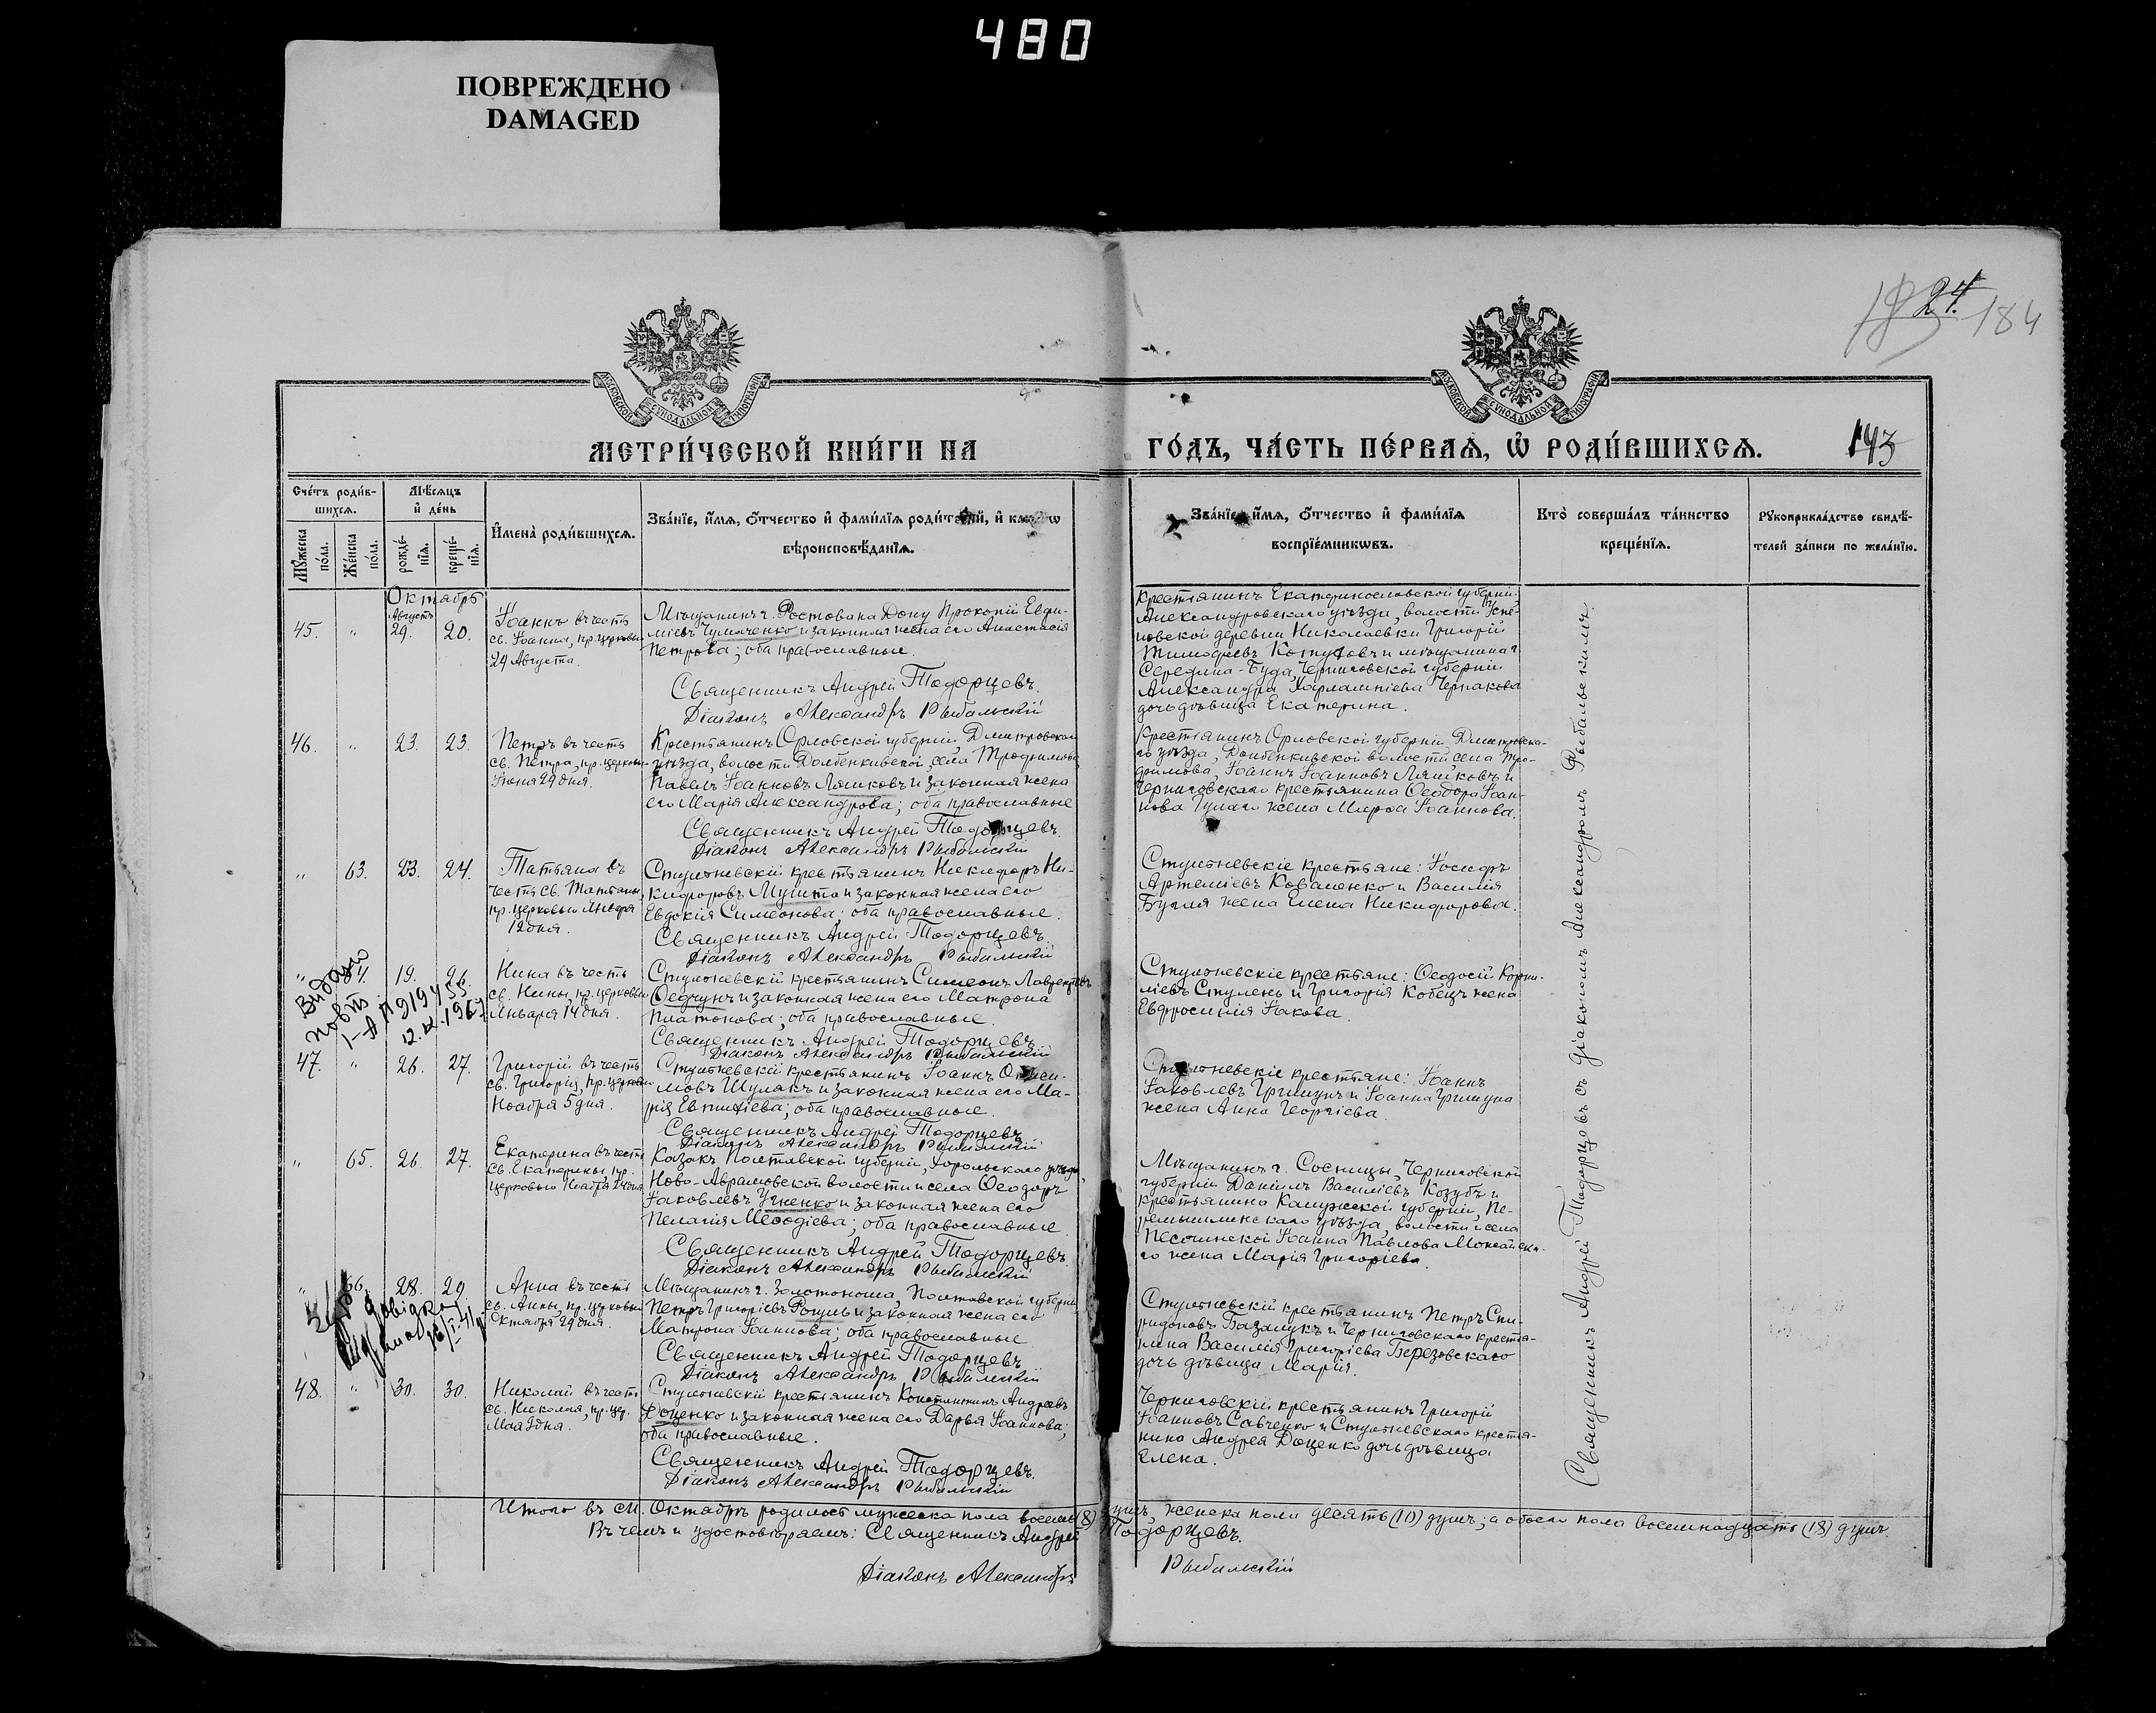 480
ПОВРЕЖДЕНО
DAMAGED
24.
184
143
МОСКОВСКОЙ СѴНОДАЛЬНОЙ ТИПОГРАФІИ
МОСКОВСКОЙ СѴНОДАЛЬНОЙ ТИПОГРАФІИ
МЕТРИ́ЧЕСКОЙ КНИ́ГИ НА ГО́ДЪ, ЧА́СТЬ ПЕ́РВАѦ, Ѡ҆ РОДИ́ВШИХСѦ.
Сче́тъ роди́в-
шихсѧ.
Мѣ́сѧцъ
и҆ де́нь
Мꙋ́жеска по́ла.
Же́нска по́ла.
рожде́-
нїѧ.
креще́-
нїѧ.
И҆мена̀ роди́вшихсѧ.
Зва́нїе, и҆́мѧ, ѻ҆́тчество и҆ фами́лїѧ роди́телей, и҆
вѣроисповѣ́данїѧ.
Зва́нїе, и҆́мѧ, ѻ҆́тчество и҆ фами́лїѧ
воспрїе́мникѡвъ.
Кто̀ соверша́лъ та́инство
креще́нїѧ.
Рꙋкоприкла́дство свидѣ́-
телей за́писи по жела́нїю.
Октябрь
45. " Августъ 29. 20.
Іоаннъ въ честь
св. Іоанна, пр. церковью
29 Августа.
Мѣщанинъ г. Ростова на Дону Прокопій Евфи-
міевъ Чумаченко и законная жена его Анастасія
Петрова; оба православные.
Священникъ Андрей Тодорцевъ.
Діаконъ Александръ Рыбальскій
Крестьянинъ Екатеринославской губерніи,
Александровскаго уѣзда, волости Успе-
новской деревни Николаевки Григорій
Тимофеевъ и мѣщанина г.
Середина-Буда, Черниговской губерніи
Александра Харлампіева Черпакова
дочь дѣвица Екатерина.
46. " 23. 23.
Петръ въ честь
св. Петра, пр. церковью
Іюня 29 дня.
Крестьянинъ Орловской губерніи, Дмитровскаго
уѣзда, волости Долбенкивской, села Трофимова
Павелъ Іоанновъ Ляшковъ и законная жена
его Марія Александрова; оба православные
Священникъ Андрей Тодорцевъ.
Діаконъ Александръ Рыбальскій
Крестьянинъ Орловской губерніи, Дмитровска-
го уѣзда, Долбенкивской волости села Тро-
фимова, Іоаннъ Іоанновъ Ляшковъ и
Черниговскаго крестьянина Ѳеодора Іоан-
нова жена Марѳа Іоаннова.
" 63. 23. 24.
Татьяна въ
честь св. Татьяны,
пр. церковью Января
12 дня.
Ступневскій крестьянинъ Никифоръ Ни-
кифоровъ Мушта и законная жена его
Евдокія Симеонова; оба православные.
Священникъ Андрей Тодорцевъ.
Діаконъ Александръ Рыбальскій
крестьяне: Іосифъ
Артеміевъ Коваленко и Василія
жена Елена Никифорова.
" 19. 26.
Нина въ честь
св. Нины, пр. церковью
Января 14 дня.
крестьянинъ Симеонъ Лаврентіевъ
Ѳедчунъ и законная жена его Матрона
Платонова; оба православные.
Священникъ Андрей Тодорцевъ
Діаконъ Александръ Рыбальскій
крестьяне: Ѳеодосій Корни-
ліевъ Ступень и Григорія Кобецъ жена
Евфросинія Іакова.
Видано
повт.
12.IX.196
47. " 26. 27.
Григорій въ честь
св. Григорія, пр. церковью
Ноября 5 дня.
крестьянинъ Іоаннъ Ониси-
мовъ Шулякъ и законная жена его Ма-
рія Евтихіева; оба православные.
Священникъ Андрей Тодорцевъ
Діаконъ Александръ Рыбальскій
крестьяне: Іоаннъ
Іаковлевъ Гришунъ и Іоанна Гришуна
жена Анна Георгіева.
" 65. 26. 27.
Екатерина въ честь
св. Екатерины, пр.
церковью Ноября 24 дня
Казакъ Полтавской губерніи, Хорольскаго уѣзда,
Ново-Аврамовской волости и села Ѳеодоръ
Іаковлевъ и законная жена его
Пелагія Меѳодіева; оба православные
Священникъ Андрей Тодорцевъ
Діаконъ Александръ Рыбальскій
Мѣщанинъ г. Сосницы, Черниговской
губерніи Даніилъ Василіевъ Козубъ и
крестьянина Калужской губерніи, Пе-
ремышльскаго уѣзда, волости и села
Песоченской Іоанна Павлова Можайска-
го жена Марія Григоріева.
" 66. 28. 29.
Анна въ честь
св. Анны, пр. церковью
Октября 29 дня.
Мѣщанинъ г. Золотоноша, Полтавской губерніи
Петръ Григоріевъ и законная жена его
Матрона Іоаннова; оба православные
Священникъ Андрей Тодорцевъ
Діаконъ Александръ Рыбальскій
крестьянинъ Петръ Спи-
ридоновъ Базалукъ и Черниговскаго крестья-
нина Василія Григоріева Березовскаго
дочь дѣвица Марія.
довідка
48. " 30. 30.
Николай въ честь
св. Николая, пр. цер.
Мая 9 дня.
крестьянинъ Константинъ Андреевъ
Доценко и законная жена его Дарья Іоаннова;
оба православные.
Священникъ Андрей Тодорцевъ.
Діаконъ Александръ Рыбальскій
Черниговскій крестьянинъ Григорій
Іоанновъ Савченко и крестья-
нина Андрея Доценко дочь дѣвица
Елена.
Священникъ Андрей Тодорцовъ съ діакономъ Александромъ Рыбальскимъ.
Итого въ м. Октябрѣ родилось мужеска пола восемь (8) душъ, женска пола десять (10) душъ; а обоего пола восемнадцать (18) душъ.
Въ чемъ и удостовѣряемъ: Священникъ Андрей Тодорцевъ.
Діаконъ Александръ Рыбальскій